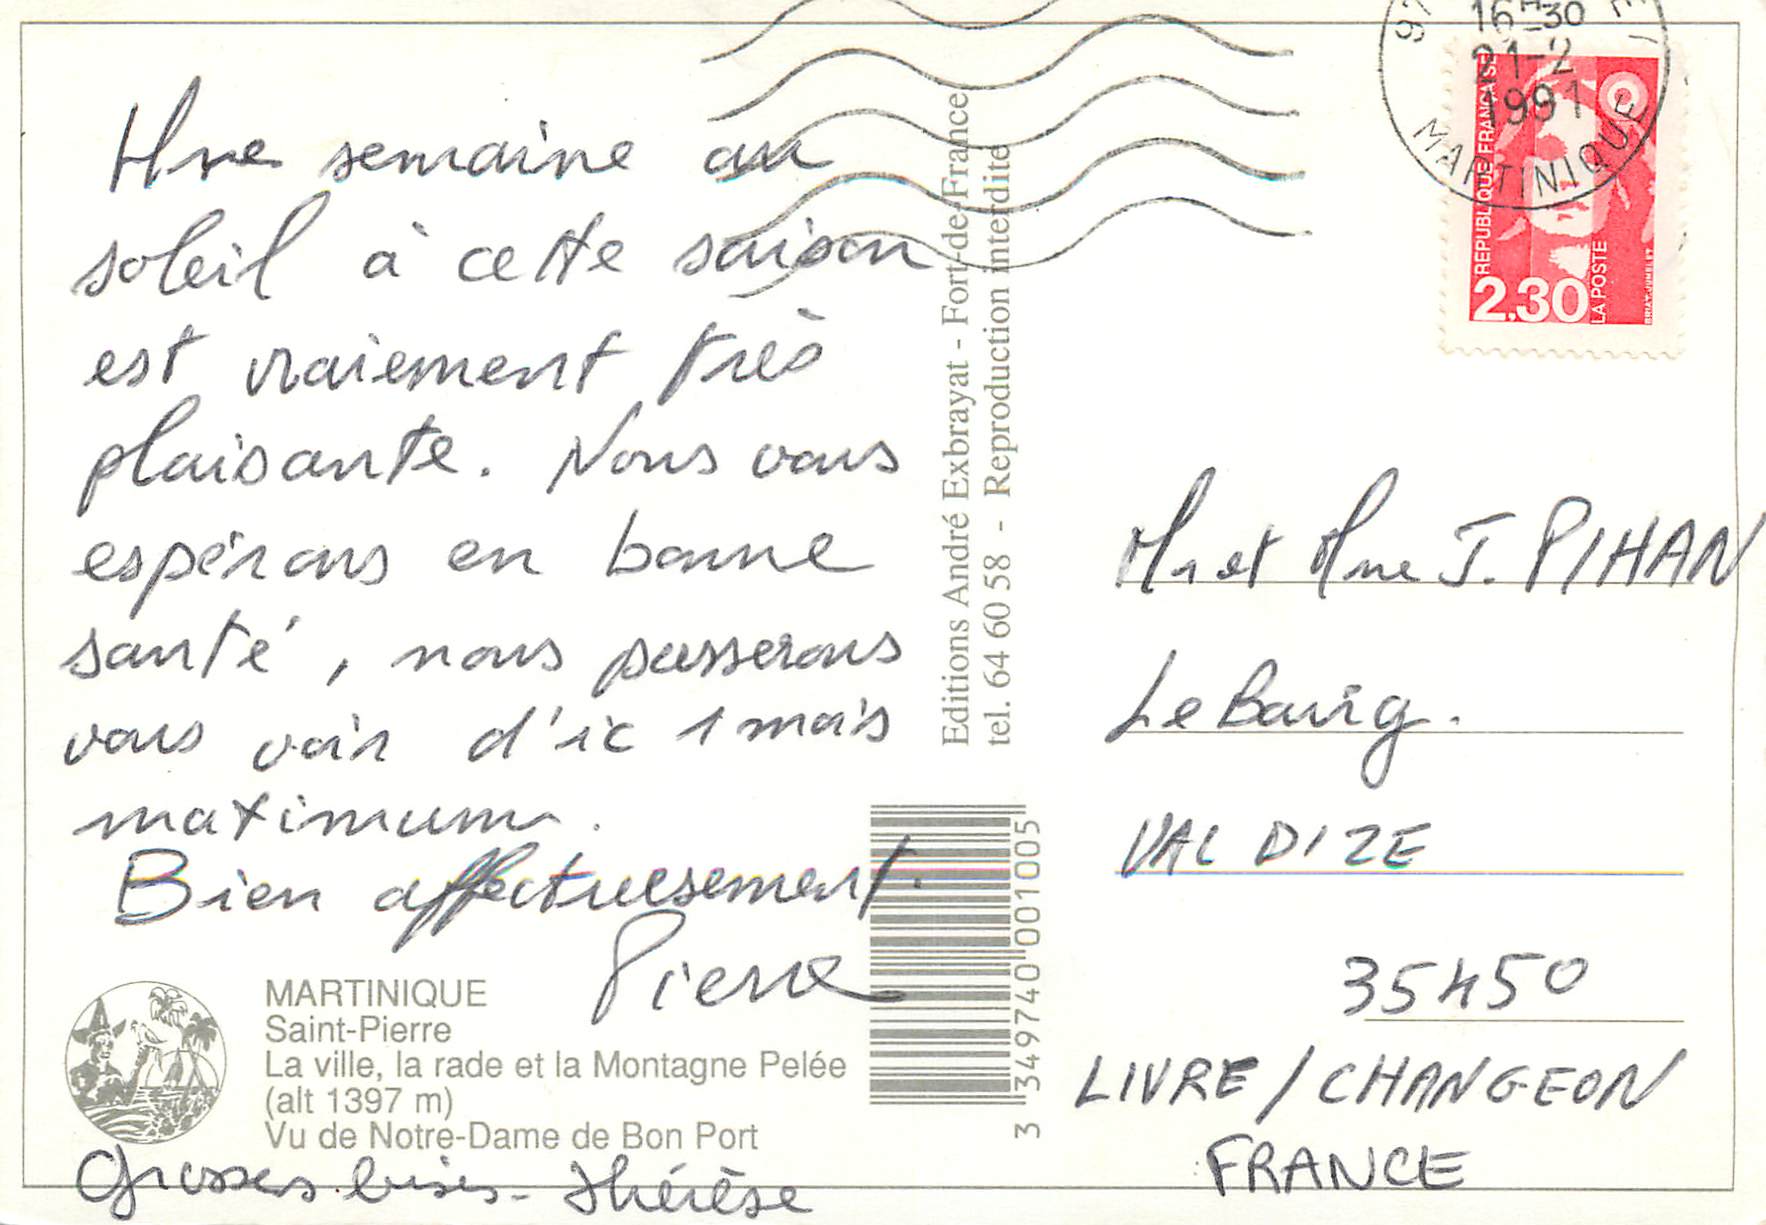 Une semaine au
soleil à cette saison
est vraiement très
plaisante. Nous vous
espérons en bonne
santé, nous passerons
vous voir d'ic 1 mois
maximum.
Bien affectueusement.
Pierre
MARTINIQUE
Saint-Pierre
La ville, la rade et la Montagne Pelée
(alt 1397 m)
Vu de Notre-Dame de Bon Port
Grosses bises - Thérèse
Editions André Exbrayat - Fort-de-France
tel. 64 60 58 - Reproduction interdite
3 349740 001005
16H30
21-2
1991
MARTINIQUE
REPUBLIQUE FRANÇAISE
2,30
LA POSTE
BRIAT-JUMELET
Mr et Mme J. PIHAN
Le Bourg.
VAL D'IZE
35450
LIVRE / CHANGEON
FRANCE